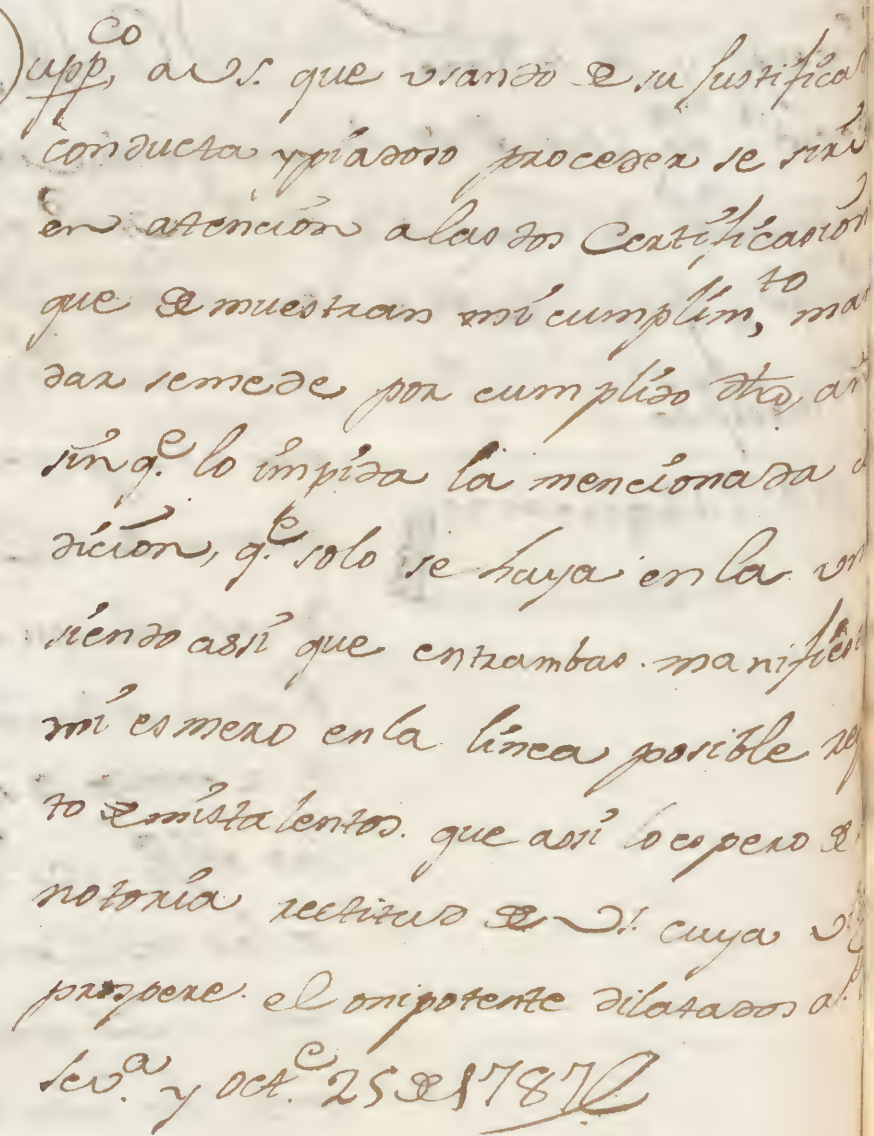 Supp.co a V.S. que usando de su Justifica
conducta y piadoso proceder se sirv
en atencion a las dos Certificasion
que demuestran mi cumplim.to man
dar se me de por cumplido dho an
sin q.e lo impida la mencionada c
dicion, q.e solo se haya en la un
siendo assi que entrambas manifies
mi esmero en la linea posible resp
to de mis talentos. que assi lo espero de
notoria rectitud de V.S. cuya v
prospere el onipotente dilatados a.
Sev.a y Oct.e 25 de 1787